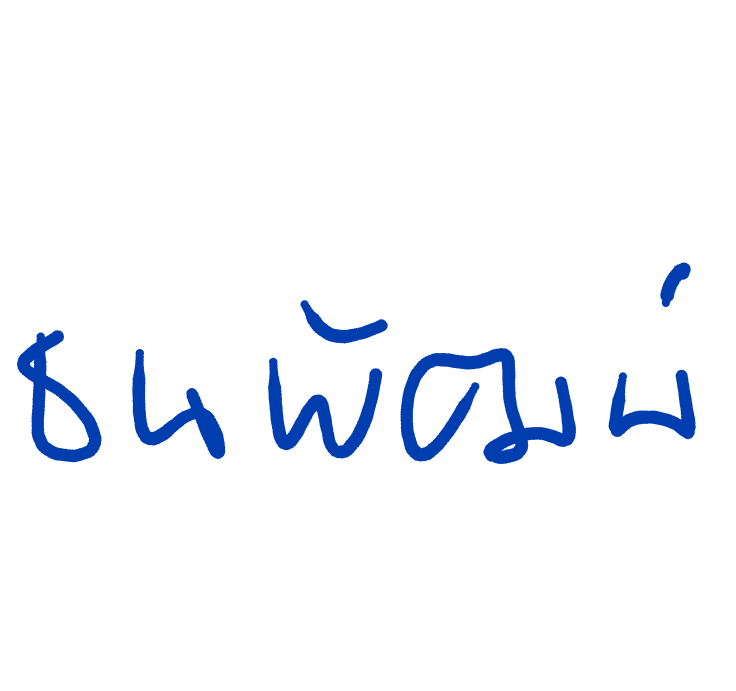 ธนพัฒน์